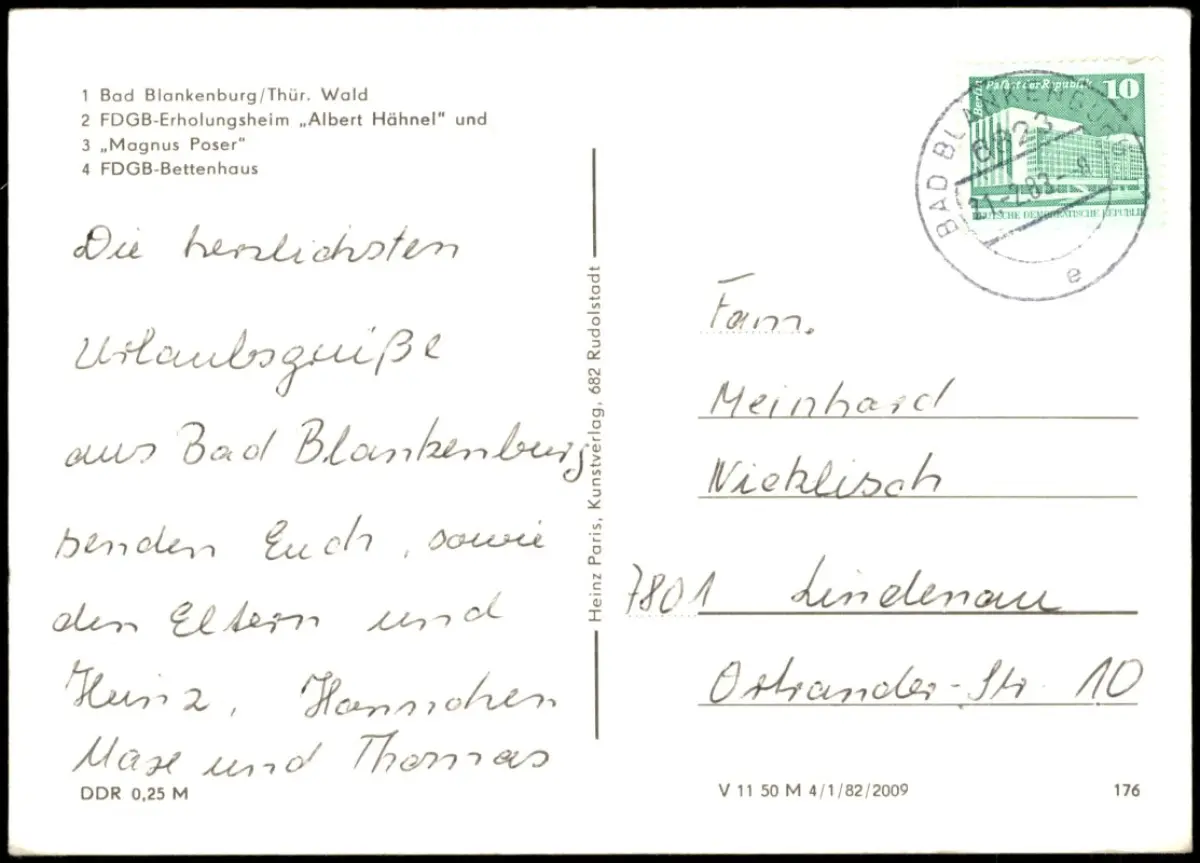 1 Bad Blankenburg/Thür. Wald
2 FDGB-Erholungsheim „Albert Hähnel" und
3 „Magnus Poser"
4 FDGB-Bettenhaus
Die herzlichsten
Urlaubsgrüße
aus Bad Blankenburg
senden Euch, sowie
den Eltern und
Heinz, Hannchen
Maxe und Thomas
DDR 0,25 M
Heinz Paris, Kunstverlag, 682 Rudolstadt
Berlin Palast der Republik 10
DEUTSCHE DEMOKRATISCHE REPUBLIK
BAD BLANKENBURG
6823
21.-2.83.-8
e
Fam.
Meinhard
Nicklisch
7801 Lindenau
Ortrander-Str. 10
V 11 50 M 4/1/82/2009
176